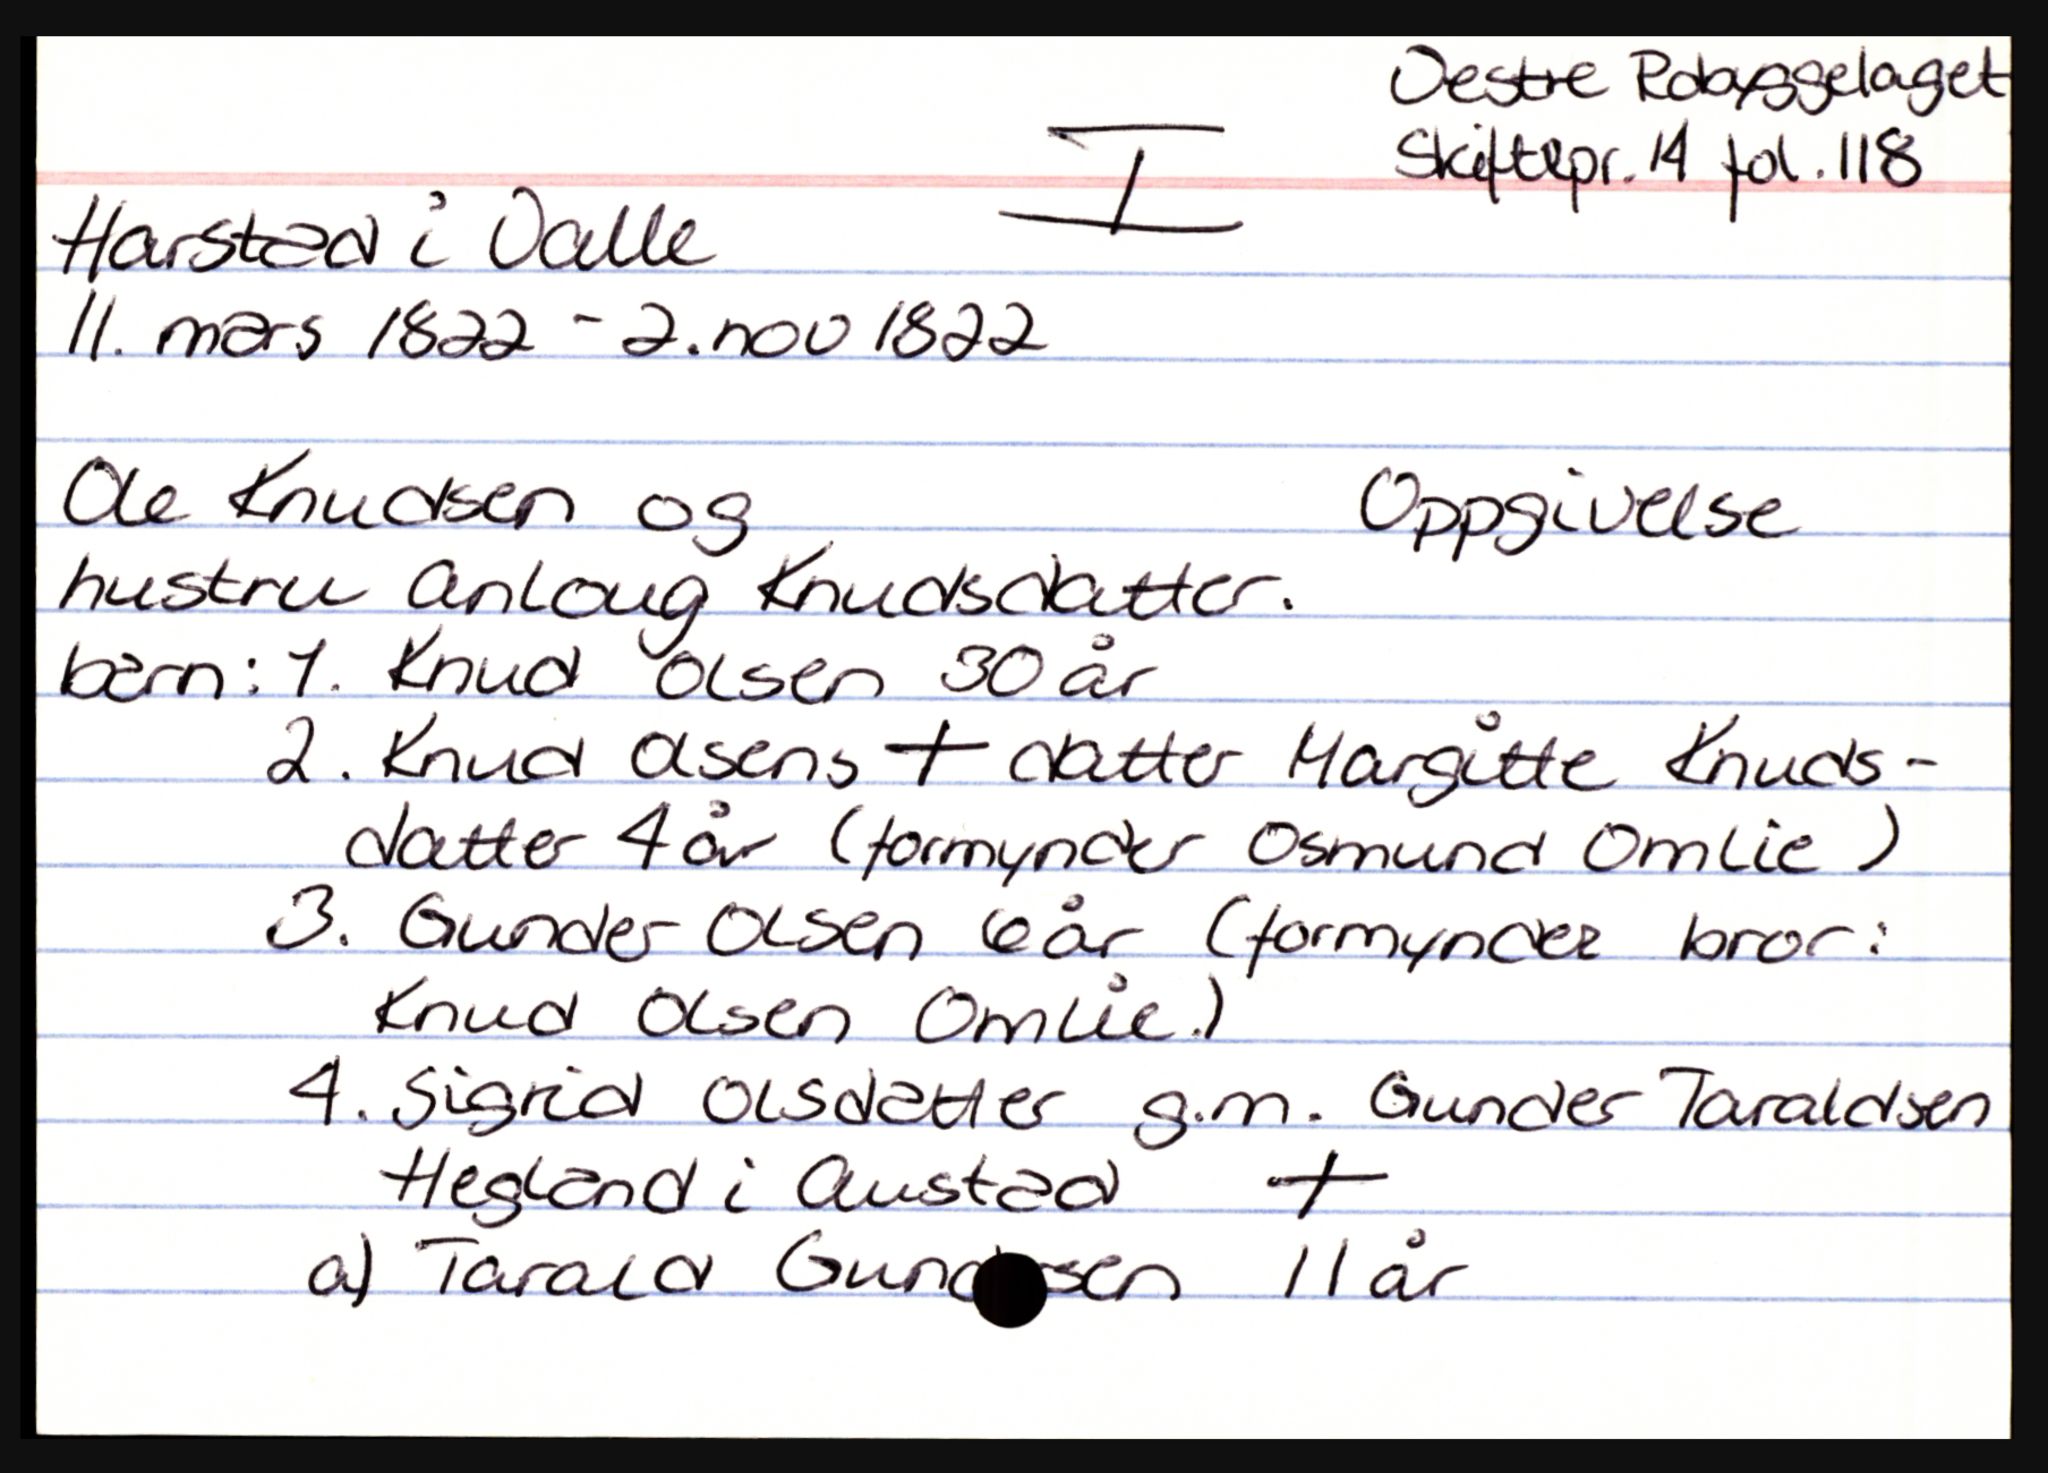 Vestre Robyggelaget
Skiftepr. 14 fol. 118
I
Harstad i Valle
11. mars 1822 - 2. nov 1822
Ole Knudsen og Oppgivelse
hustru Anloug Knudsdatter.
barn: 1. Knud Olsen 30 år
2. Knud Olsens + datter Margitte Knuds-
datter 4 år (formynder Osmund Omlie)
3. Gunder Olsen 6 år (formynder bror:
Knud Olsen Omlie.)
4. Sigrid Olsdatter g.m. Gunder Taraldsen
Hegland i Austad +
a) Tarald 11 år